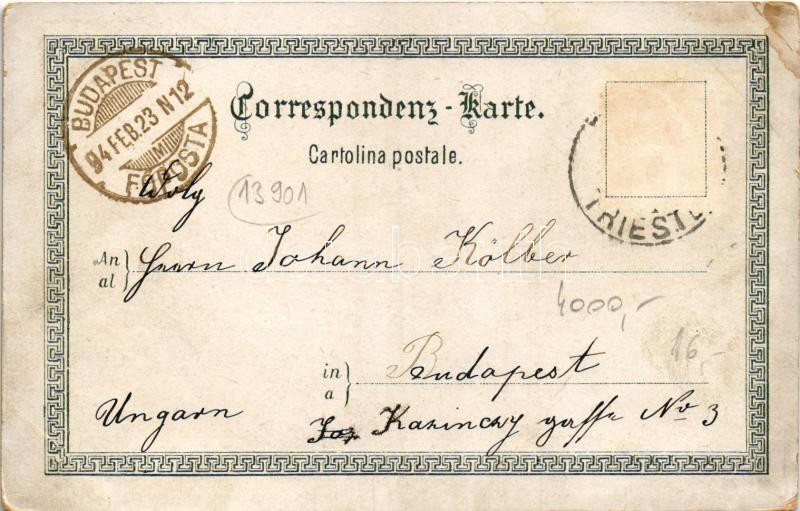 BUDAPEST
94 FEB. 23 N 12
FŐPOSTA
Correspondenz-Karte.
Cartolina postale.
TRIEST
13901
An
al
Herrn Johann Kölber
4000,-
16,-
in
a
Budapest
Ungarn
Kazinczy gasse No 3